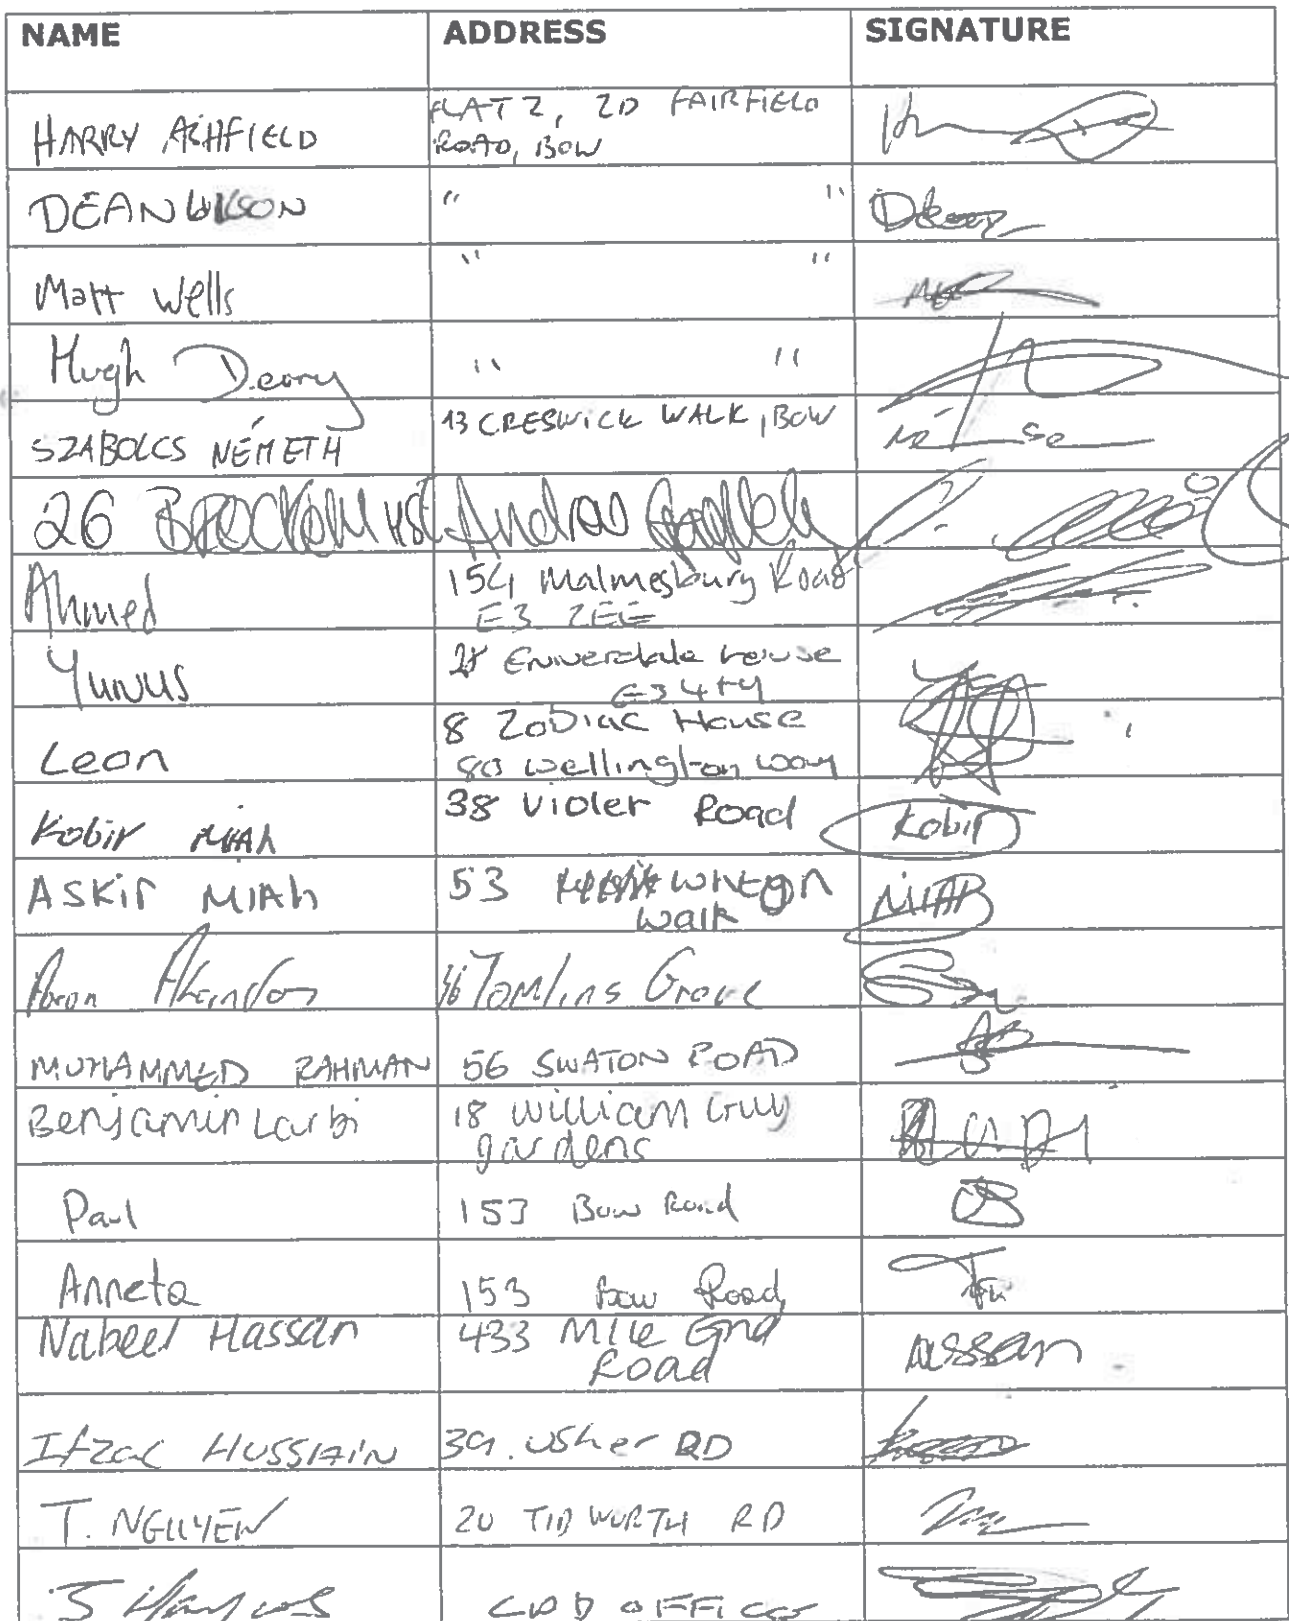 NAME ADDRESS SIGNATURE
HARRY ASHFIELD FLAT 2, 2D FAIRFIELD
ROAD, BOW
DEAN WILSON " "
Matt Wells " "
Hugh Deary " "
SZABOLCS NÉMETH 13 CRESWICK WALK, BOW
26 Andras
Ahmed 154 Malmesbury Road
E3 2EE
Yunus House
E3 4
Leon 8 Zodiac House
80 Wellington way
Kobir MIAH 38 Violet Road Kobir
ASKIR MIAH 53
walk MIAH
Tomlins Grove
MUHAMMED RAHMAN 56 SWATON ROAD
Benjamin Larbi 18 William Guy
gardens
Paul 153 Bow Road
Anneta 153 Bow Road
Nabeel Hassan 433 Mile End
Road Hassan
HUSSIAIN 39. Usher RD
T. NGUYEN 20 TIDWORTH RD
J OFFICES